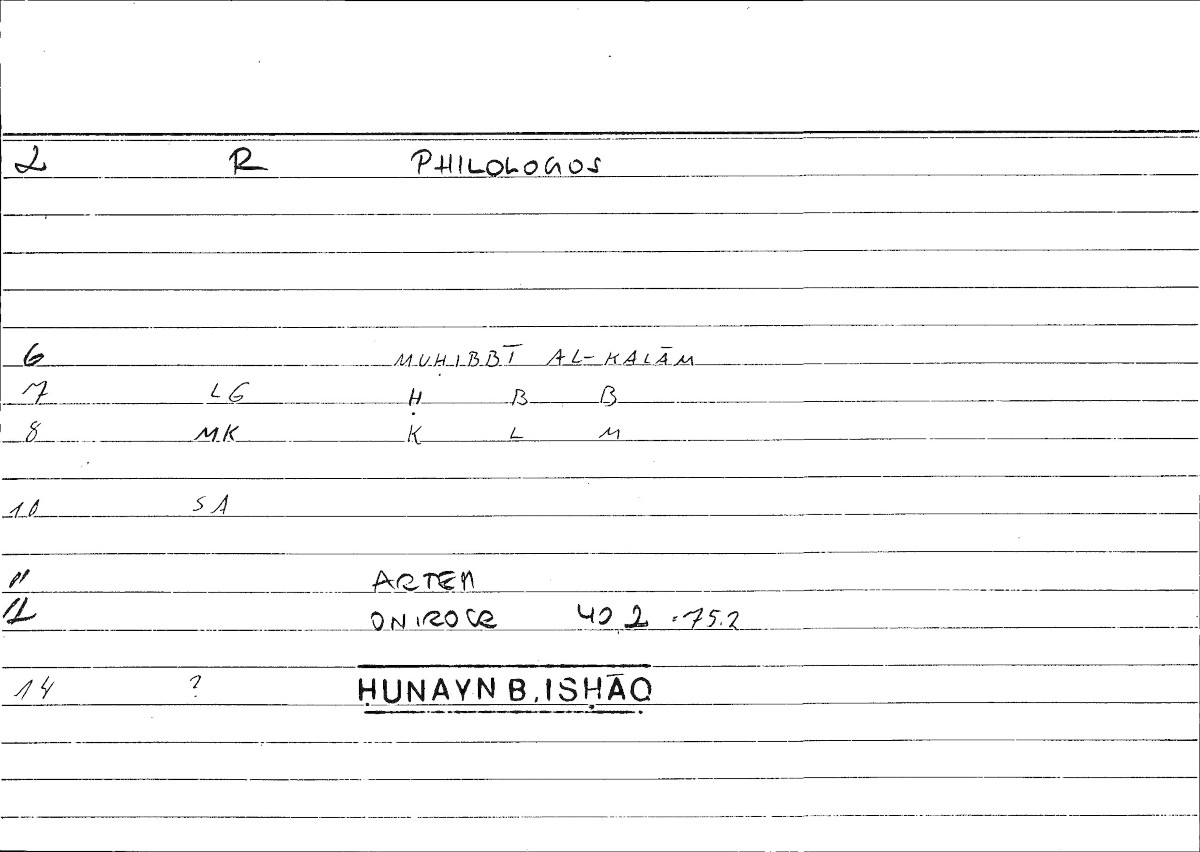 2 R PHILOLOGOS
6 MUḤIBBĪ AL-KALĀM
7 LG Ḥ B B
8 MK K L M
10 SA
11 ARTEM
12 ONIROCR 40,2 = 75.2
14 ? ḤUNAYN B. ISḤĀQ